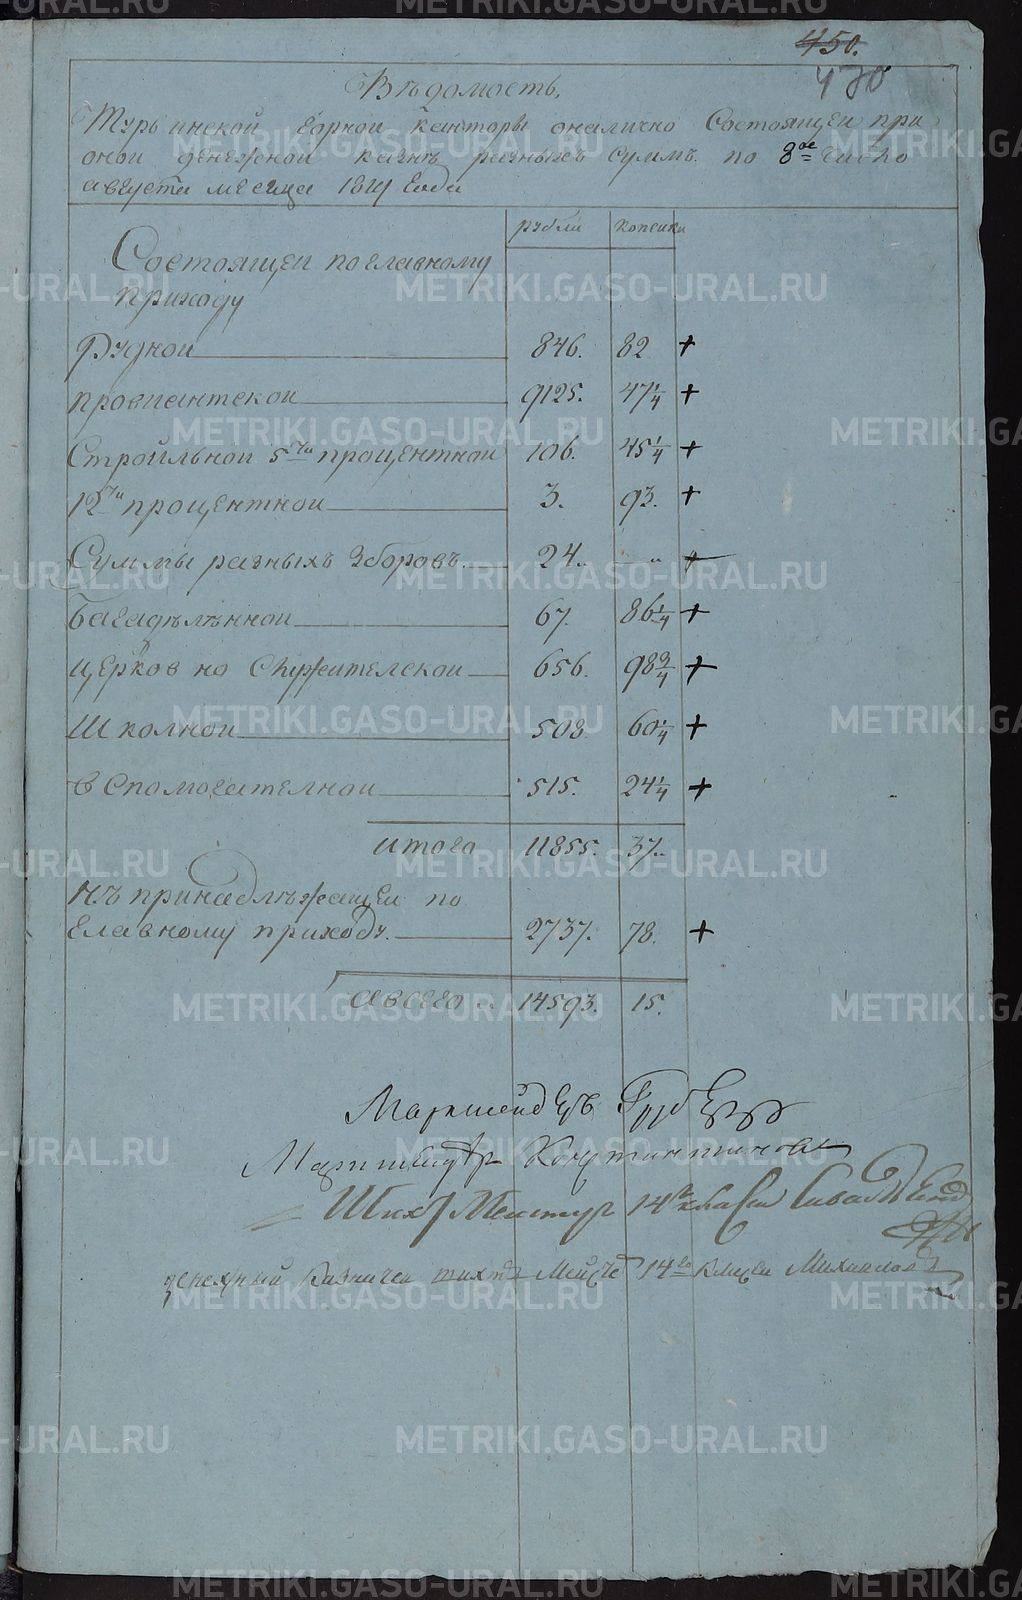 450.
470
Вѣдомость,
Турьинской горной канторы оналично Состоящеи при
оной денежной казнѣ разныхъ суммъ. по 8ое число
августа месеца 1821 года
рубли копейки
Состоящеи поглавному
приходу
Рудной 846. 82 +
провиантской 9125. 47 1/4 +
Стройльной 5ти процентной 106. 45 1/4 +
12ти процентной 3. 93. +
Суммы разныхъ Зборовъ. 24.. — „ +
багадѣлѣнной 67. 86 1/4 +
церковно Служителской 656. 98 3/4 +
Школной 508 60 1/4 +
вспомогателной 515. 24 1/4 +
итого 11855. 37..
Нѣпринадлѣжащеи по
главному приходу. 2737. 78. +
авсего .. 14593. 15.
Маркшейдеръ
Маркшейдеръ Константиновъ
Шихтмейстеръ 14го класса
денежный казначеи шихтъ Мейстеръ 14го класса Михайловъ
METRIKI.GASO-URAL.RU